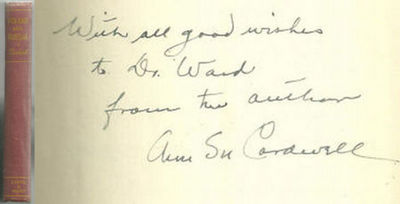 With all good wishes
to Dr. Ward
from the author
Ann Su Cardwell